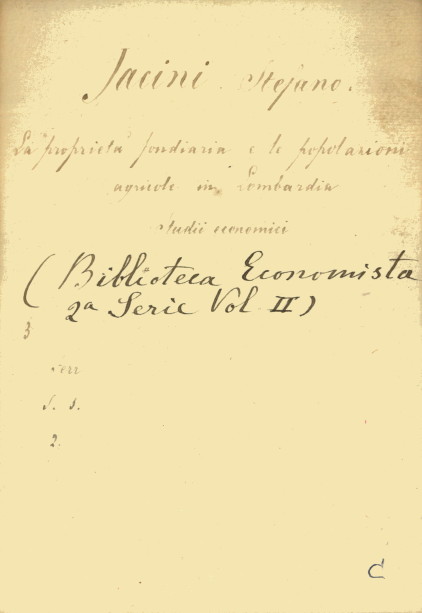 Jacini. Stefano.
La proprietà fondiaria e le popolazioni
agricole in Lombardia
Studii economici
( Biblioteca Economista
2ª Serie Vol II )
3
S. s.
2.
C